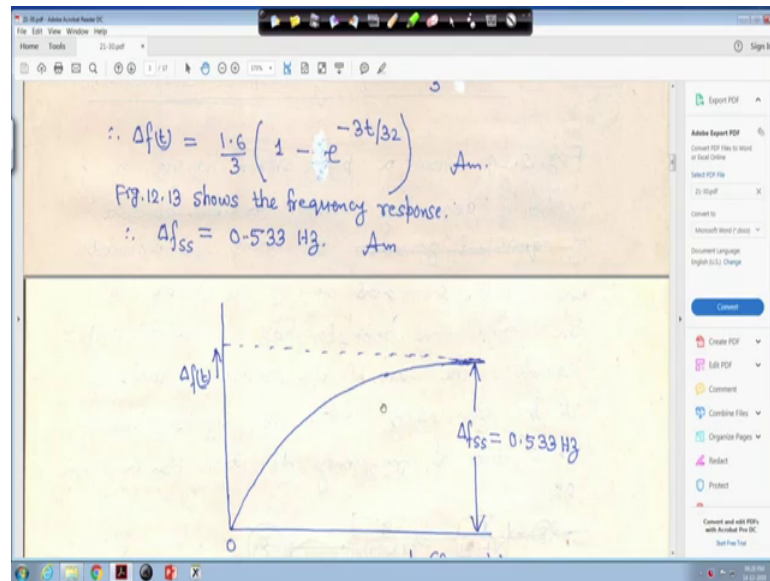 21-30.pdf - Adobe Acrobat Reader DC
File Edit View Window Help
Home Tools 21-30.pdf ×
Sign In
3 / 17
175%
3
∴ Δf(t) = 1.6/3 ( 1 - e^(-3t/32) ) Am.
Fig.12.13 shows the frequency response.
∴ Δfss = 0.533 Hz. Am
Δf(t)
Δfss = 0.533 Hz
0
Export PDF
Adobe Export PDF
Convert PDF Files to Word
or Excel Online
Select PDF File
21-30.pdf ×
Convert to
Microsoft Word (*.docx)
Document Language:
English (U.S.) Change
Convert
Create PDF
Edit PDF
Comment
Combine Files
Organize Pages
Redact
Protect
Convert and edit PDFs
with Acrobat Pro DC
Start Free Trial